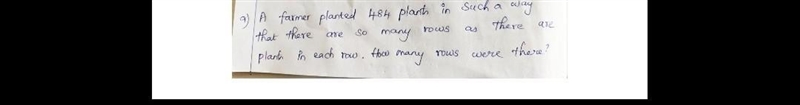 9) A farmer planted 484 plants in such a way
that there are so many rows as there are
plants in each row. How many rows were there?